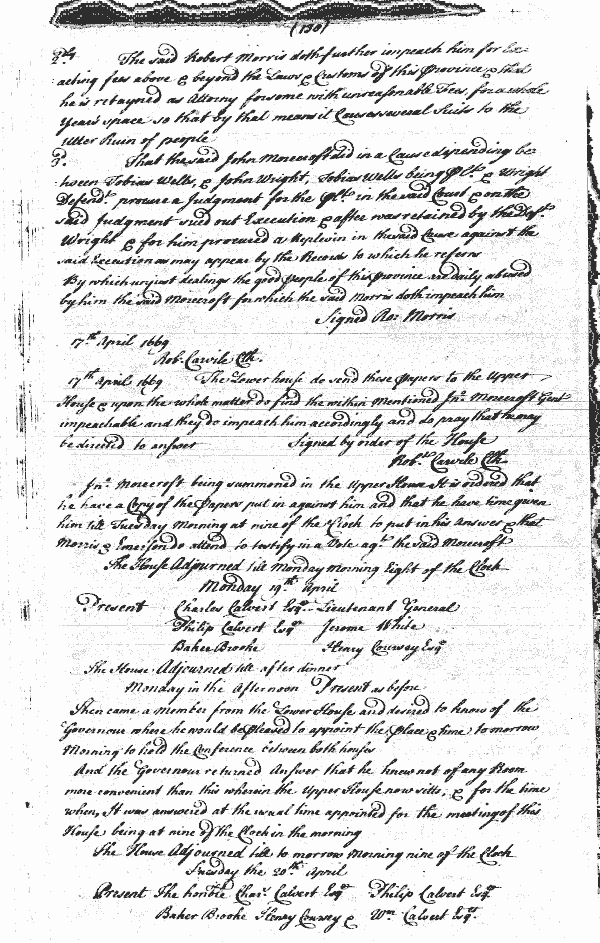 (130)
2dly The said Robert Morris doth further impeach him for Ex-
acting fees above & beyond the Laws & Customs of this Province & that
he is retayned as Attorny for some with unreasonable Fees, for a whole
Years space so that by that means it Causes several Suits to the
utter Ruin of people
3. That the said John Morecroft did in a Cause depending be-
tween Tobias Wells, & John Wright, Tobias Wells being Plt. & Wright
Defendt. procure a Judgment for the Plt. in the said Court & on the
said Judgment sued out Execution & after was retained by the Deft.
Wright & for him procured a Replevin in the said Cause against the
said Execution as may appear by the Records to which he referrs
By which unjust dealings the good People of this Province are daily abused
by him the said Morecroft for which the said Morris doth impeach him
Signed Ro: Morris
17th April 1669
Rob. Carvile Clk.
17th April 1669 The Lower house do send these Papers to the Upper
House & upon the whole matter do find the within Mentioned Jno. Morecroft Gent
impeachable and they do impeach him accordingly and do pray that he may
be directed to answer Signed by order of the House
Robt. Carvile Clk
Jno. Morecroft being summoned in the Upper House It is ordered that
he have a Copy of the Papers put in against him and that he have time given
him till Tuesday Morning at nine of the Clock to put in his Answer & that
Morris & Emerson do attend to testify in a Vote agt. the said Morecroft
The House Adjourned till Monday Morning Eight of the Clock
Monday 19th April
Present Charles Calvert Esqr. Lieutenant General
Philip Calvert Esqr Jerome White
Baker Brooke Henry Coursey Esqr
The House Adjourned till after dinner
Monday in the Afternoon Present as before
Then came a Member from the Lower House and desired to know of the
Governour where he would be pleased to appoint the place & time to morrow
Morning to hold the Conference between both houses
And the Governour returned Answer that he knew not of any Room
more convenient than this wherein the Upper House now sitts, & for the time
when, It was answered at the usual time appointed for the meeting of this
House being at nine of the Clock in the morning
The House Adjourned till to morrow Morning nine of the Clock
Tuesday the 20th April
Present The honble Char. Calvert Esqr Philip Calvert Esqr.
Baker Brooke Henry Coursey & Wm. Calvert Esqr.